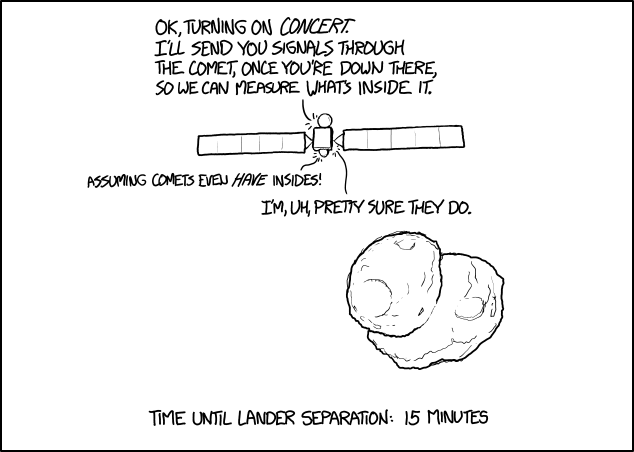 OK, TURNING ON CONCERT.
I'LL SEND YOU SIGNALS THROUGH
THE COMET, ONCE YOU'RE DOWN THERE,
SO WE CAN MEASURE WHAT'S INSIDE IT.
ASSUMING COMETS EVEN HAVE INSIDES!
I'M, UH, PRETTY SURE THEY DO.
TIME UNTIL LANDER SEPARATION: 15 MINUTES